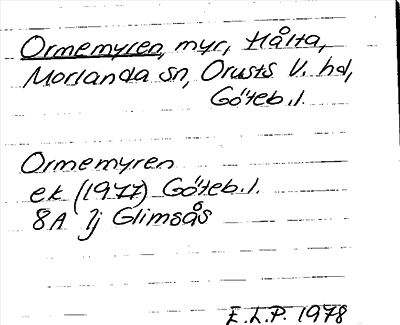 Ormemyren, myr, Hålta,
Morlanda sn, Orusts V. hd,
Göteb.l.
Ormemyren
ek (1977) Göteb.l.
8A 7j Glimsås
E.L.P. 1978